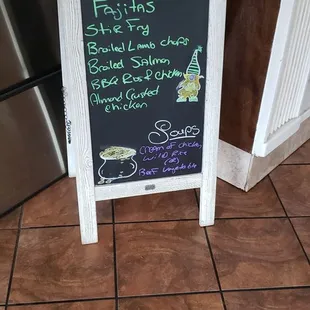 Fajitas
Stir Fry
Broiled Lamb chops
Broiled Salmon
BBQ Roof chicken
Almond Crusted
chicken
Soups
Cream of chicken
Wild Rice
(or)
Beef Vegetable